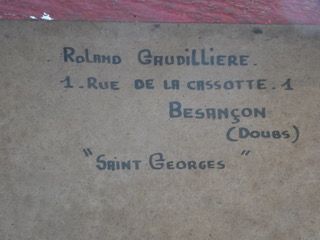 Roland Gaudilliere.
1. Rue de la Cassotte. 1
Besançon
(Doubs)
"Saint Georges"